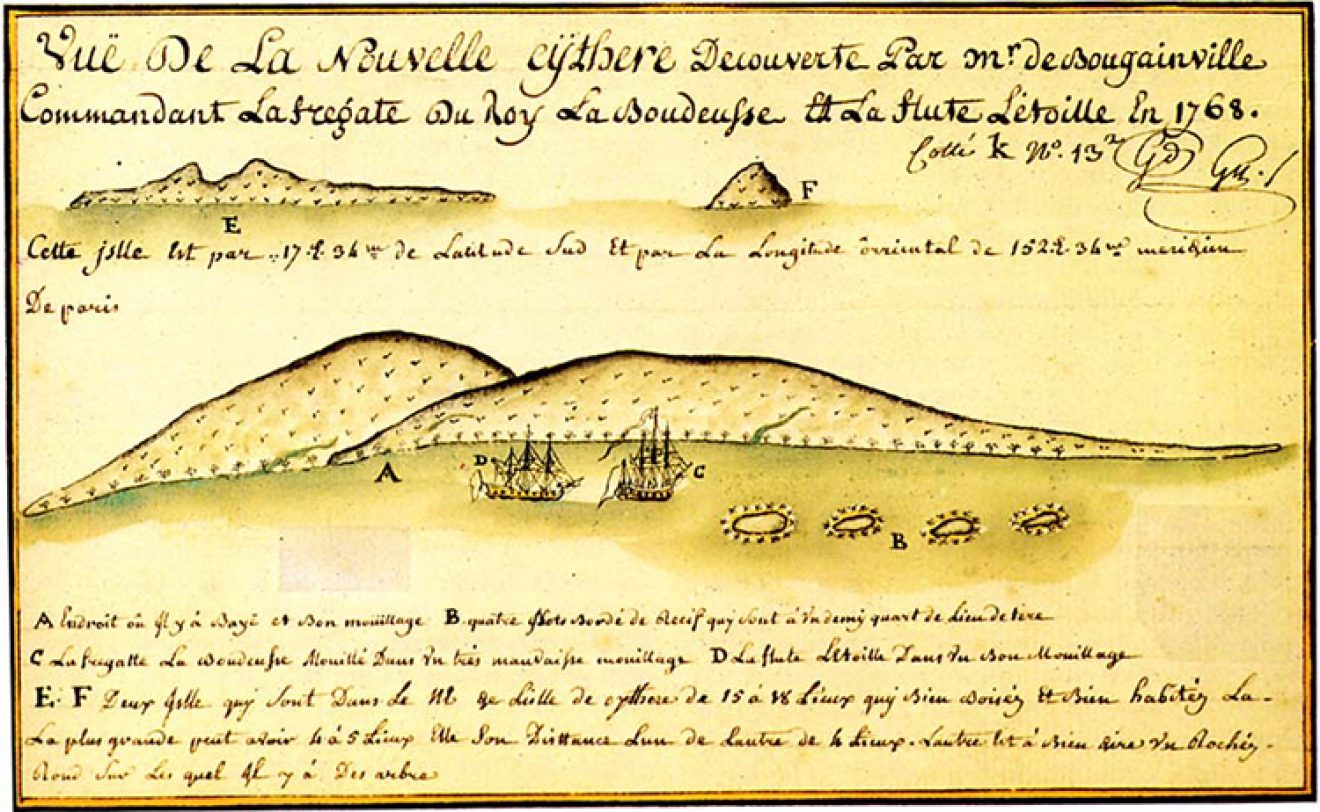 Vuë De La Nouvelle cÿthere Decouverte Par mr. de Bougainville
Commandant La fregate Du Roy La Boudeusse Et La flute Letoille En 1768.
Collé k No. 13
E
F
Cette jslle Est par 17 34 de Latitude Sud Et par La Longitude orriental de 152 34 meridien
De paris
A
D
C
B
A Endroit où Jl y à Baye et Bon mouillage B quatre Jlots Bordé de Recif quy sont à Un demy quart de Lieu de tere
C La fregatte La Boudeusse Mouillé Dans Un trés mauvaisse mouillage D La flute LEtoille Dans Un Bon Mouillage
E. F Deux Jslle quy sont Dans Le de Lislle de cythere de 15 à 18 Lieux quy Bien Boiséz Et Bien habitéz La-
La plus grande peut avoir 4 à 5 Lieux Elle Son Disttance Lun de Lautre de 4 Lieux. Lautre Est à Bien dire Un Rochéz-
Rond Sur Les quel Jl y á Des arbre